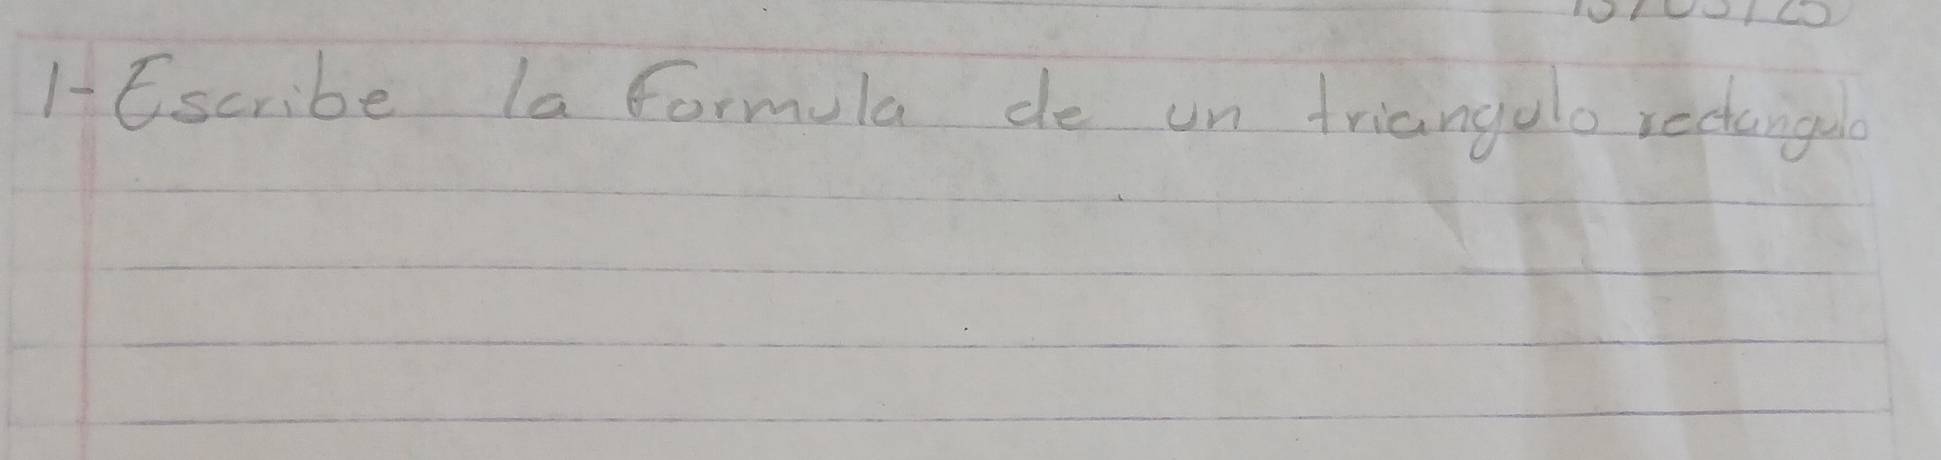 1- Escribe la formula de un triangulo rectangulo